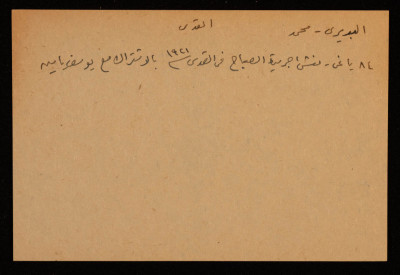 البديري - محمد القدس
٨٤ ياغي - منشئ جريدة الصباح في القدس ١٩٢١ بالاشتراك مع يوسف ياسين